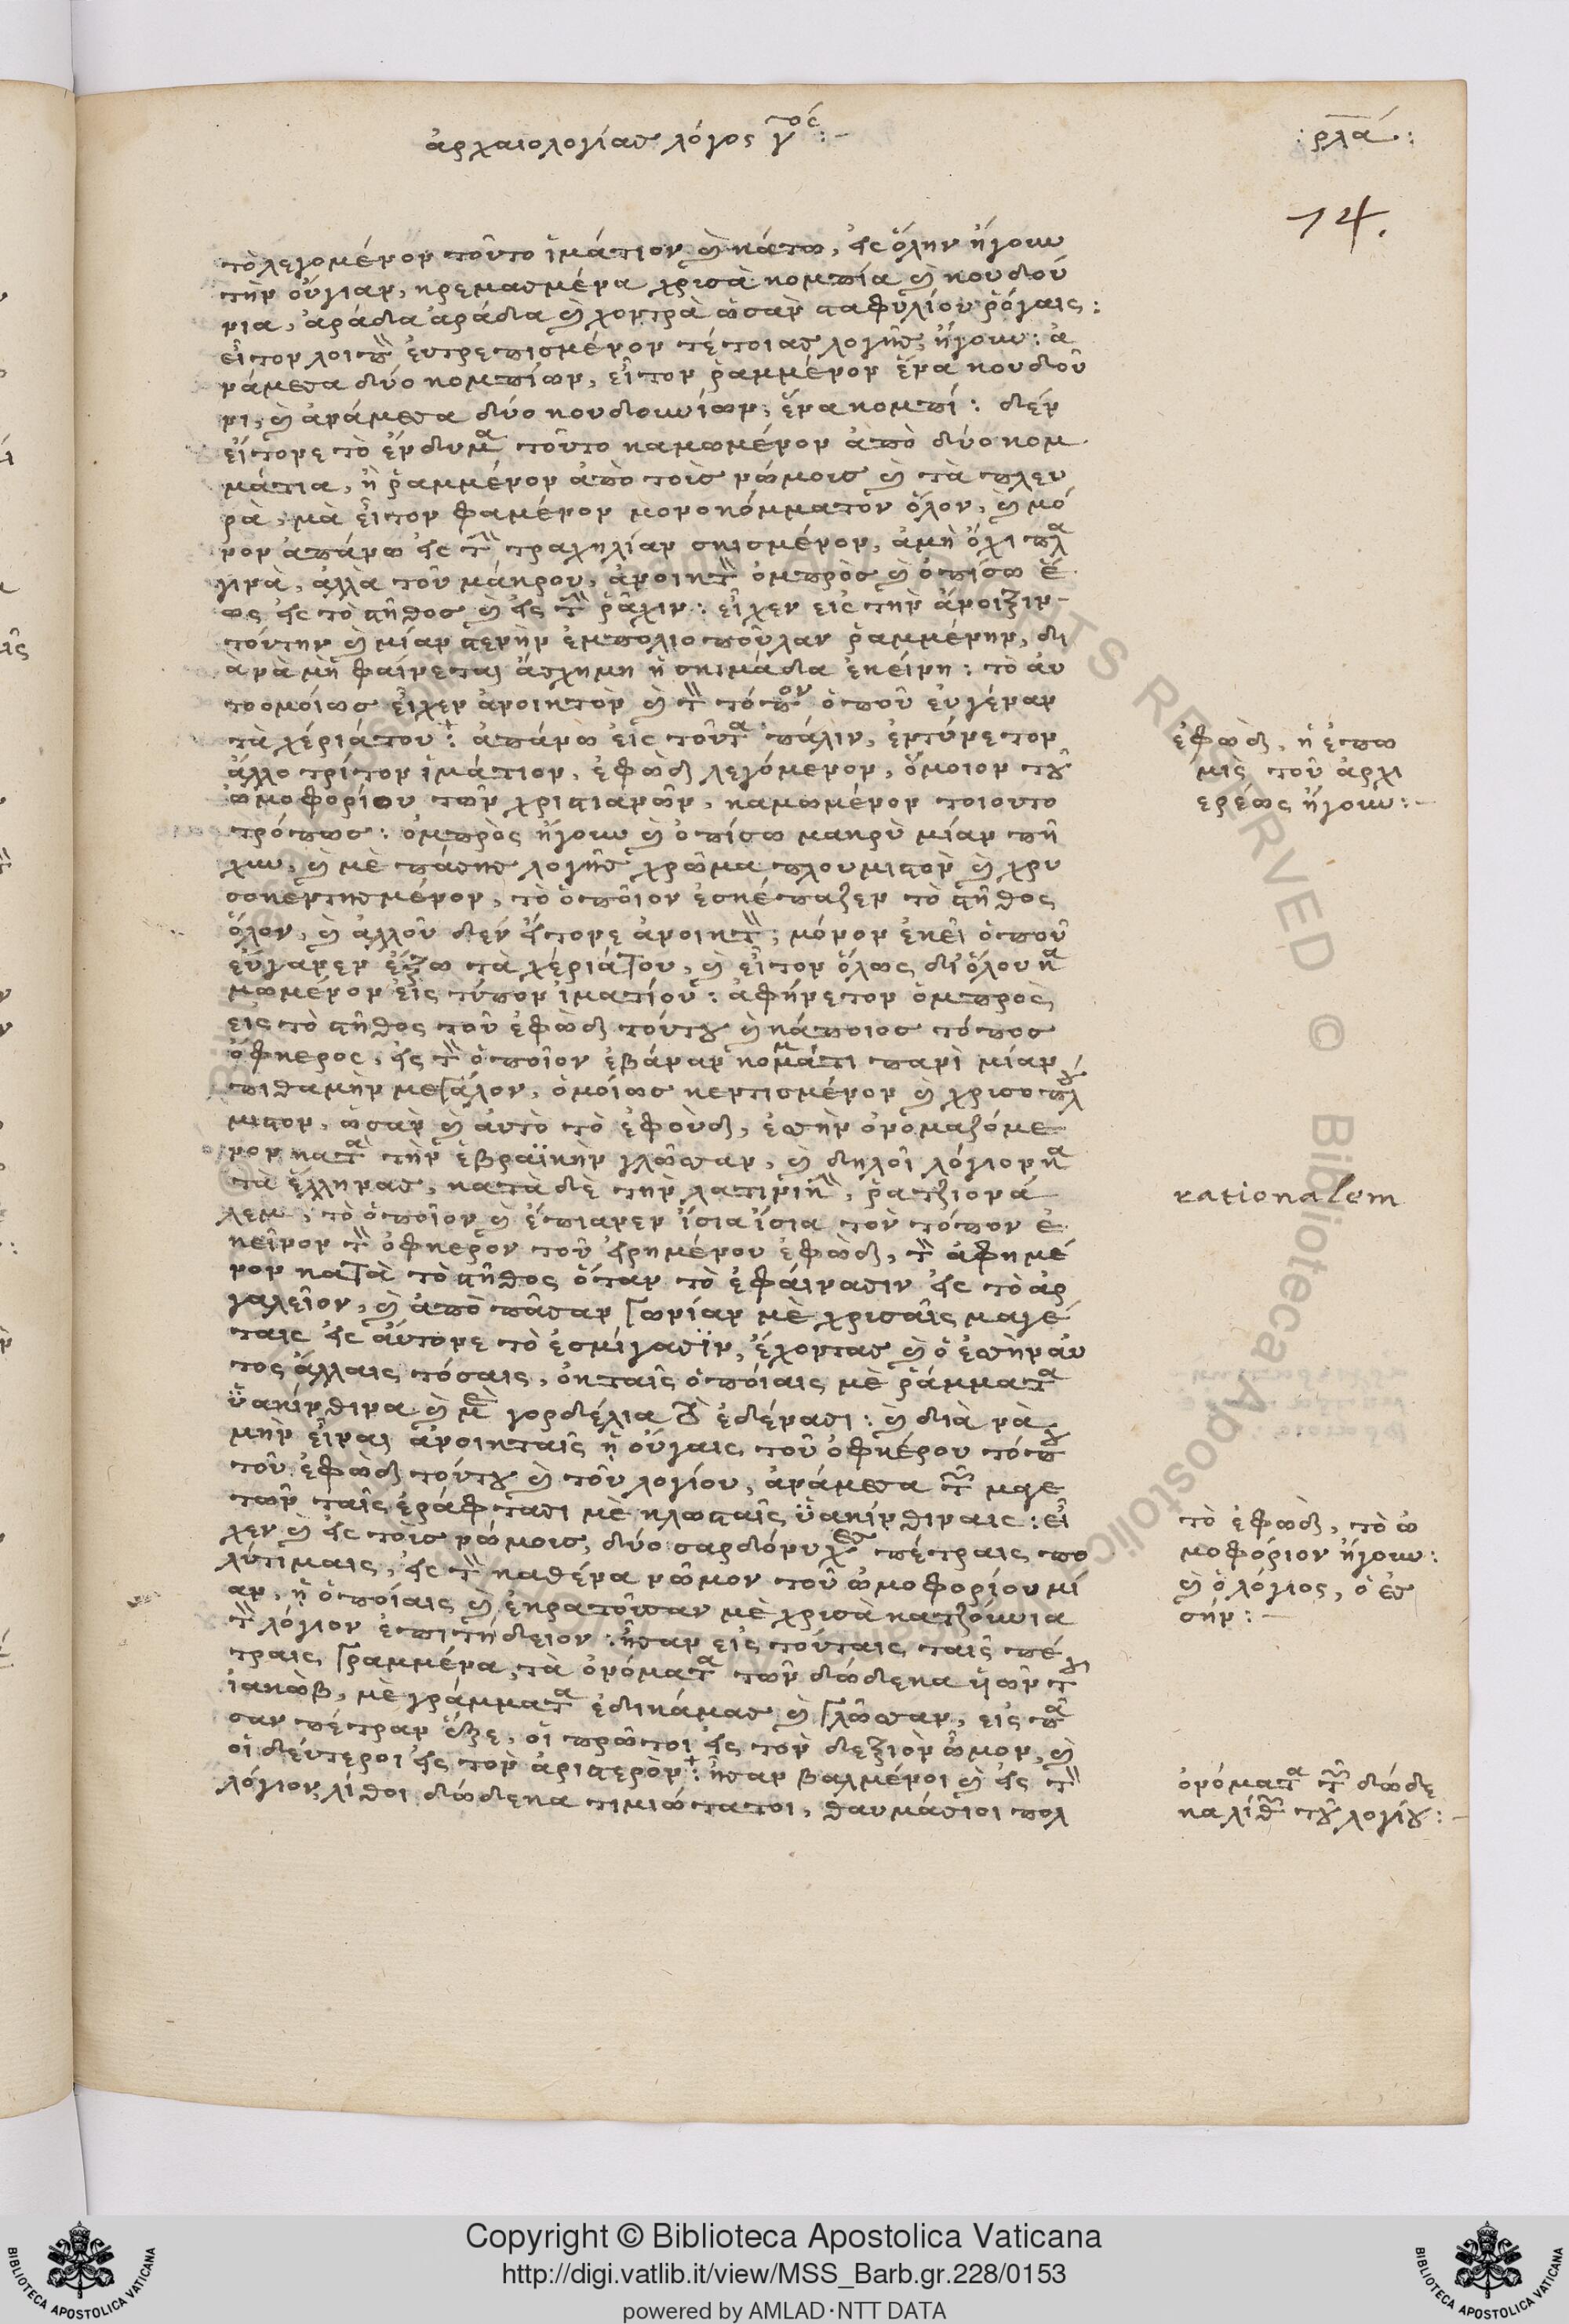 ἀρχαιολογίασ λόγος γ^ος:-
:ρλα:
14.
τὸ λεγομένον τοῦτο ἱμάτιον ὲ κάτω, εἰς ὅλην ἤγουν
τὴν οὔγιαν, κρεμασμένα χρισὰ κομπία ὲ κουδού
νια, ἀράδα ἀράδα ὲ χοντρὰ ὡσὰν σταφυλίου ῥόγαις:
εἶτον λοιπὸν εὐτρεπισμένον τέτοιας λογῆς, ἤγουν: ἀ
νάμεσα δύο κομπίων, εἶτον ῥαμμένον ἕνα κουδοῦ
νι, ὲ ἀνάμεσα δύο κουδουνίων, ἕνα κομπί: δέν
εἴτονε τὸ ἔνδυμα τοῦτο καμωμένον ἀπὸ δύο κομ
μάτια, ἢ ῥαμμένον ἀπὸ τοὶς νώμοις ὲ τὰ πλευ
ρὰ, μὰ εἶτον φαμένον μονοκόμματον ὅλον, ὲ μό
νον ἀπάνω εἰς τὴν τραχηλίαν σκισμένον, ἀμὴ ὄχι πλα
γινὰ, ἀλλὰ τοῦ μάκρου, ἀνοικτὸν ὀμπρὸς ὲ ὀπίσω ἕ
ως εἰς τὸ στῆθος ὲ εἰς τὴν ῥάχιν: εἶχεν εἰς τὴν ἄνοιξιν
τούτην ὲ μίαν στενὴν ἐμπολιοποῦλαν ῥαμμένην, δι
ανὰ μὴ φαίνεται ἄσχημη ἡ σκιμάδα ἐκείνη: τὸ αὐ
τοομοίως εἶχεν ἀνοικτὸν ὲ τὸν τόπον ὁποῦ εὐγέναν
τὰ χέριάτου: ἀπάνω εἰς τοῦτα πάλιν, ἐντύνετον
ἄλλο τρίτον ἱμάτιον, ἐφὼδ λεγόμενον, ὅμοιον τοῦ
ὠμοφορίου τῶν χριστιανῶν, καμωμένον τοιουτο
τρόπως: ὀμπρὸς ἤγουν ὲ ὀπίσω μακρὺ μίαν πῆ
χυν, ὲ μὲ πάσης λογῆς χρῶμα πλουμιστὸν ὲ χρυ
σοκεντησμένον, τὸ ὁποῖον ἐσκέπαζεν τὸ στῆθος
ὅλον, ὲ ἀλλοῦ δὲν εἴτονε ἀνοικτὸν, μόνον ἐκεῖ ὁποῦ
εὔγανεν ἔξω τὰ χέριάτου, ὲ εἶτον ὅλως δι' ὅλου κα
μωμένον εἰς τύπον ἱματίου: ἀφήνετον ὀμπρὸς
εἰς τὸ στῆθος τοῦ ἐφὼδ τούτου ὲ κάποιος τόπος
ὄφκερος, εἰς τὸν ὁποῖον ἐβάναν κομμάτι πανὶ μίαν
πιθαμὴν μεγάλον, ὁμοίως κεντισμένον ὲ χρισοπλου
μιστον, ὡσὰν ὲ αὐτὸ τὸ ἐφοὺδ, ἐσὴν ὀνομαζόμε
νον κατὰ τὴν ἑβραϊκὴν γλῶσσαν, ὲ δηλοῖ λόγιον κα
τὰ ἕλληνας, κατὰ δὲ τὴν λατινικὴν, ῥατζιονά
λεμ, τὸ ὁποῖον ὲ ἔπιανεν ἴσια ἴσια τὸν τόπον ἐ
κεῖνον τὸν ὀφκερον τοῦ εἰρημένου ἐφὼδ, τὸν ἀφημέ
νον κατὰ τὸ στῆθος ὅταν τὸ ἐφάινασιν εἰς τὸ ἀρ
γαλεῖον, ὲ ἀπὸ πᾶσαν γωνίαν μὲ χρισαῖς μαγέ
ταις εἰς αὔτονε τὸ ἐσμίγασιν, ἔχοντας ὲ ὁ ἐσὴν αὐ
τος ἄλλαις τόσαις, σκταῖς ὁποίαις μὲ ῥάμματα
ὑακίνθινα ὲ μὲ γορδέλια τὸ ἐδένασι: ὲ διὰ νὰ
μὴν εἶναι ἀνοικταῖς ἡ οὔγαις τοῦ ὀφκέρου τόπου
τοῦ ἐφὼδ τούτου ὲ τοῦ λογίου, ἀνάμεσα τῶν μαγε
τῶν ταῖς ἐράφτασι μὲ κλωσταῖς ὑακίνθιναις: εἶ
χεν ὲ εἰς τοὶς νώμοις, δύο σαρδόνυχες πέτραις πο
λύτιμαις, εἰς τὸν καθένα νῶμον τοῦ ὠμοφορίου μί
αν, ἡ ὁποίαις ὲ ἐκρατοῦσαν μὲ χρισὰ κατζούνια
τὸ λόγιον ἐπιτήδειον: ἦσαν εἰς τούταις ταῖς πέ
τραις γραμμένα, τὰ ὀνόματα τῶν δώδεκα υἱῶν τοῦ
ἰακὼβ, μὲ γράμματα ἐδικάμας ὲ γλῶσσαν, εἰς πᾶ
σαν πέτραν ἕξε, οἱ πρῶτοι εἰς τὸν δεξιὸν ὦμον, ὲ
οἱ δεύτεροι εἰς τὸν ἀριστερὸν: ἦσαν βαλμένοι ὲ εἰς τὸ
λόγιον, λίθοι δώδεκα τιμιώτατοι, θαυμάσιοι πολ
ἐφὼδ, ἡ ἐπω
μὶς τοῦ ἀρχι
ερέως ἤγουν:-
rationalem
τὸ ἐφὼδ, τὸ ὠ
μοφόριον ἤγουν:
ὲ ὁ λόγιος, ὁ ἐσ
σήν:-
ὀνόματα τῶν δώδε
κα λίθων τοῦ λογίου:-
Copyright © Biblioteca Apostolica Vaticana
http://digi.vatlib.it/view/MSS_Barb.gr.228/0153
powered by AMLAD·NTT DATA
BIBLIOTECA APOSTOLICA VATICANA
BIBLIOTECA APOSTOLICA VATICANA